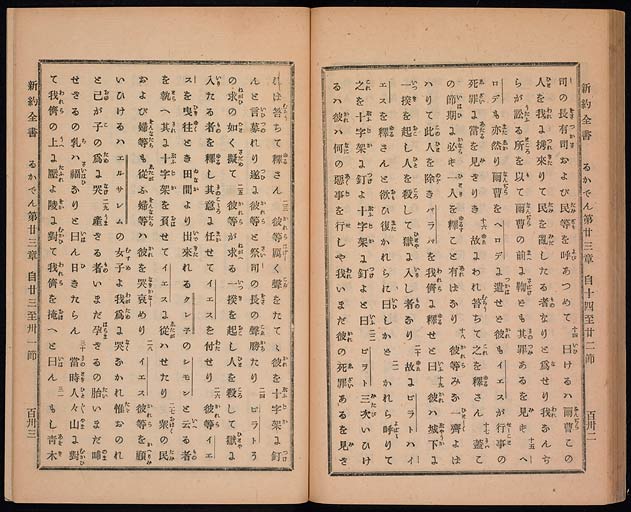 新約全書　るかでん第廿三章　自十四至廿二節　百卅二
司の長有司および民等を呼あつめて 十四 曰けるハ爾曹この
人を我に携來りて民を亂したる者なりと爲せり我なんぢ
らが訟る所を以て爾曹の前に鞫とも其罪あるを見ず ヘ
ロデも亦然り爾曹をヘロデに遣せしに彼もイエスが行事の
死罪に當を見ざりき 十六 故にわれ笞ちて之を釋さん 十七 蓋こ
の節期に必ず一人を釋こと有ばなり 十八 彼等みな一齊よば
はりて此人を除きバラバを我儕に釋せと曰 十九 彼ハ城下に
一揆を起し人を殺して獄に入し者なり 二十 故にピラトハイ
エスを釋さんと欲ひ復かれらに曰しかど 二一 かれら呼りて
之を十字架に釘よ十字架に釘よと曰 二二 ピラト三次いひけ
るハ彼ハ何の惡事を行しや我いまだ彼の死罪あるを見ざ
新約全書　るかでん第廿三章　自廿三至卅一節　百卅三
笞ちて釋さん 二三 彼等厲く聲をたてて彼を十字架に釘
んと言募れり遂に彼等と祭司の長の聲勝たり 二四 ピラトそ
の求の如く擬て 二五 彼等が求る一揆を起し人を殺して獄に
入たる者を釋し其意に任せてイエスを付せり 二六 彼等イエ
スを曳往とき田間より出來れるクレ子のシモンと云る者
を執へ其に十字架を負せてイエスに從ハせたり 二七 衆の民
および婦等も從ふ婦等ハ彼を哭哀めり 二八 イエス彼等を顧
いひけるハエルサレムの女子よ我爲に哭なかれ惟おのれ
と己が子の爲に哭 二九 産ざる者いまだ孕ざるの胎いまだ哺
せざるの乳ハ福なりと曰ん日きたらん 三十 當時人々山に對
て我儕の上に壓よ陵に對て我儕を掩へと曰ん 三一 もし青木